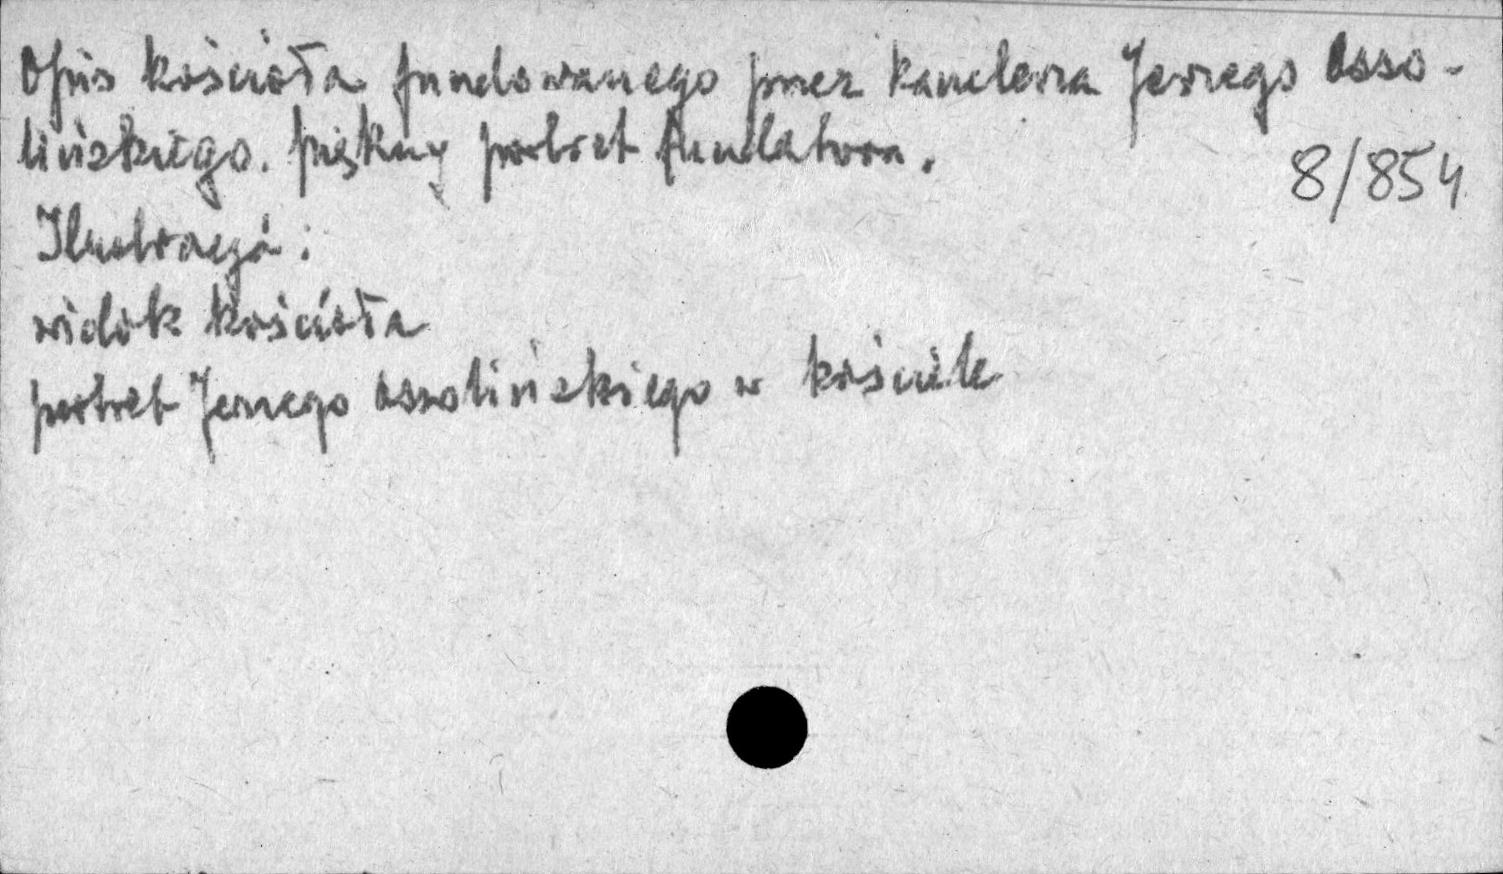 Opis kościoła fundowanego przez kanclerza Jerzego Osso-
lińskiego. piękny portret fundatora.
8/854
Ilustracja:
widok kościoła
portret Jerzego Ossolińskiego w kościele